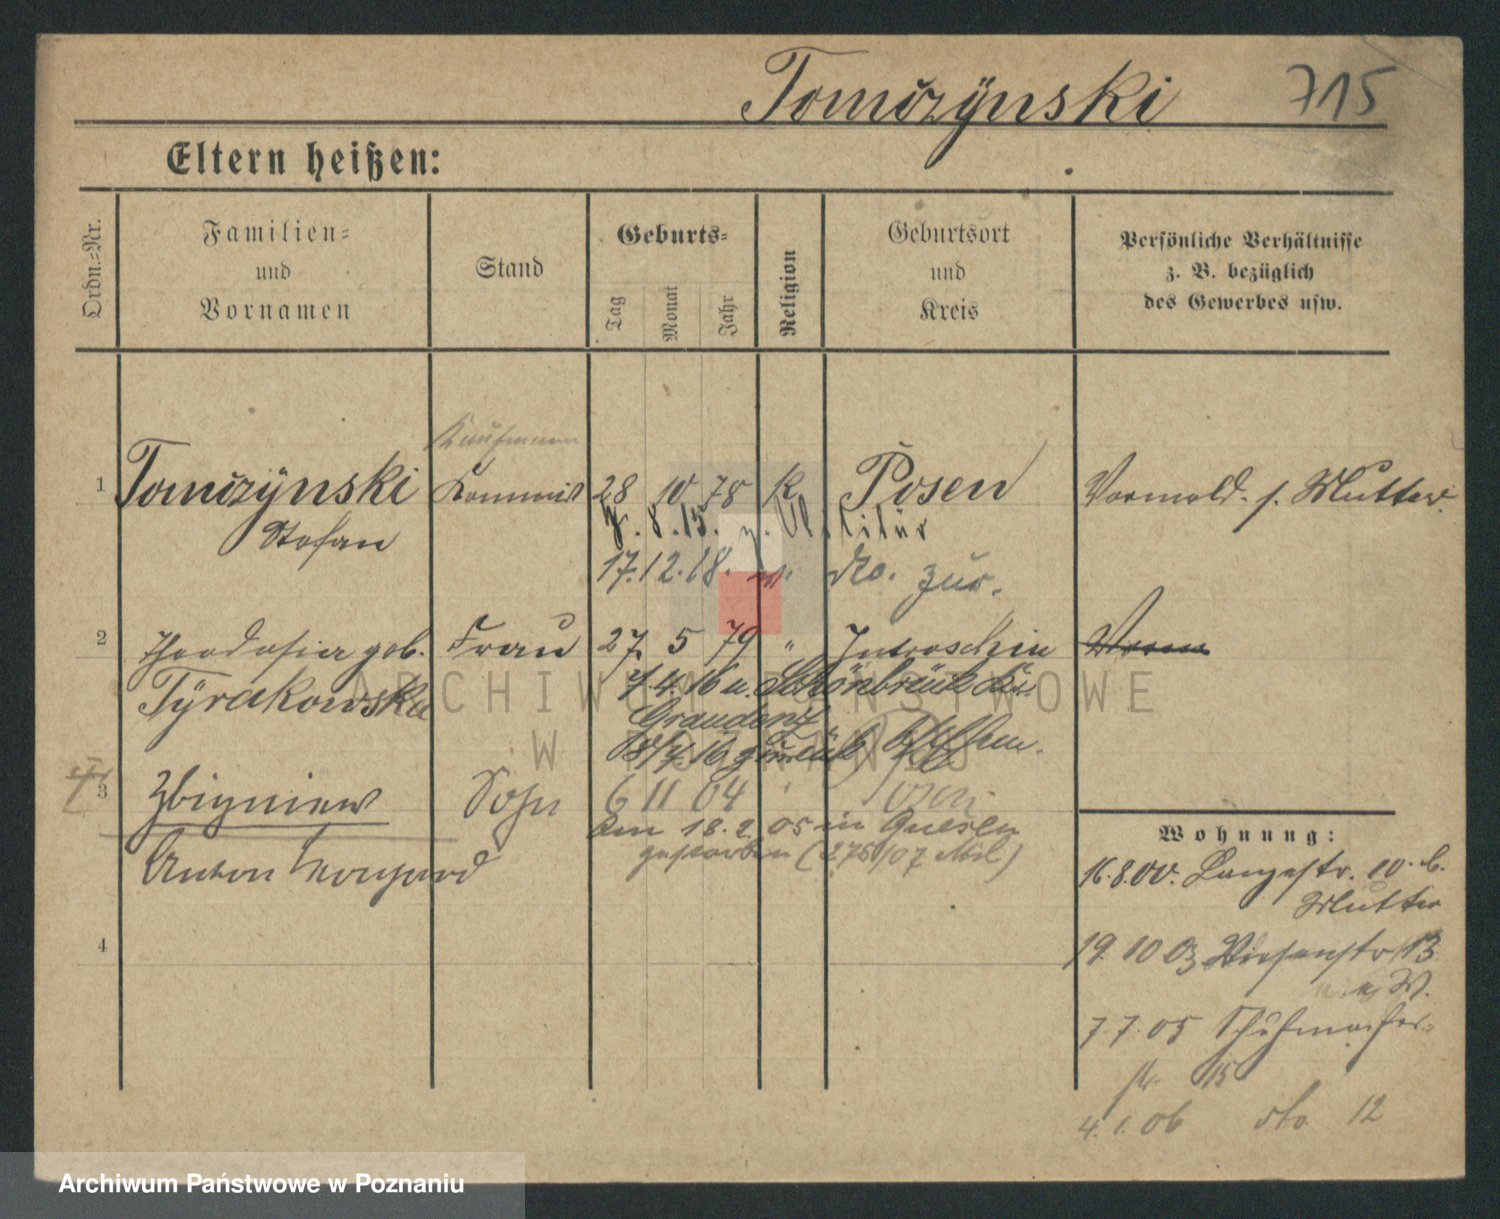 Tomczÿnski 715
Eltern heißen:
Ordn.-Nr.
Familien-
und
Vornamen
Stand
Geburts-
Tag
Monat
Jahr
Religion
Geburtsort
und
Kreis
Persönliche Verhältnisse
z. B. bezüglich
des Gewerbes usw.
Kaufmann
1 Tomczÿnski Kommis 28 10 78 K Posen Vormold. s. Mutter.
Stefan
8.15. z. Militär
17.12.18. v. do. zur.
2 Theodosia geb. Frau 27 5 79 " Jutroschin
Tÿrakowska 7/4.16 n. Schönbrück Kr.
Graudenz
18/4.16 zurück
3 Zbigniew Sohn 6 11 04 " Posen
am 18.2.05 in Gnesen
gestorben (275/07 Mil)
Anton
4
Wohnung:
16.8.00. Langestr. 10 b.
Mutter
19.10 03 Wiesenstr 13
7.7.05 Schuhmacher-
str. 15
4.1.06 do. 12
ARCHIWUM PAŃSTWOWE
W POZNANIU
Archiwum Państwowe w Poznaniu